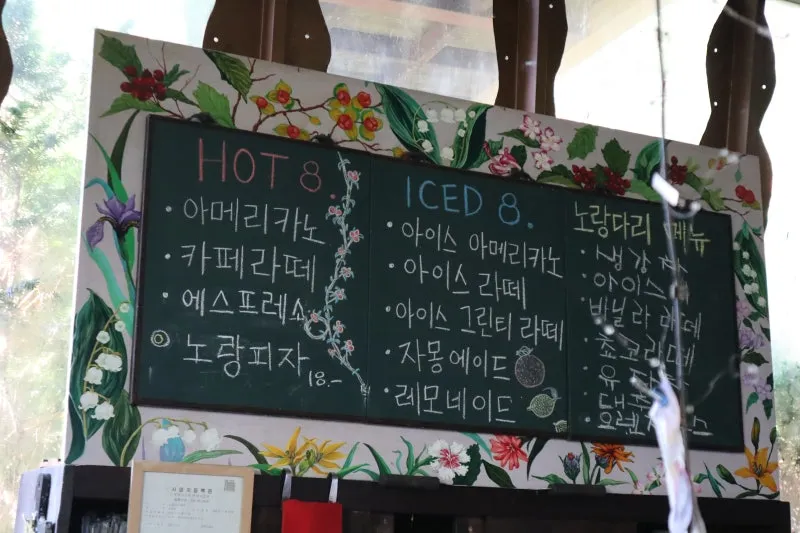 HOT 8.
· 아메리카노
· 카페라떼
· 에스프레소
노랑피자
18.-
ICED 8.
· 아이스 아메리카노
· 아이스 라떼
· 아이스 그린티 라떼
· 자몽에이드
· 레모네이드
노랑다리 메뉴
· 생강차
· 아이스
· 바닐라 라떼
· 초코라떼
· 유
· 대추
· 오렌
사업자등록증